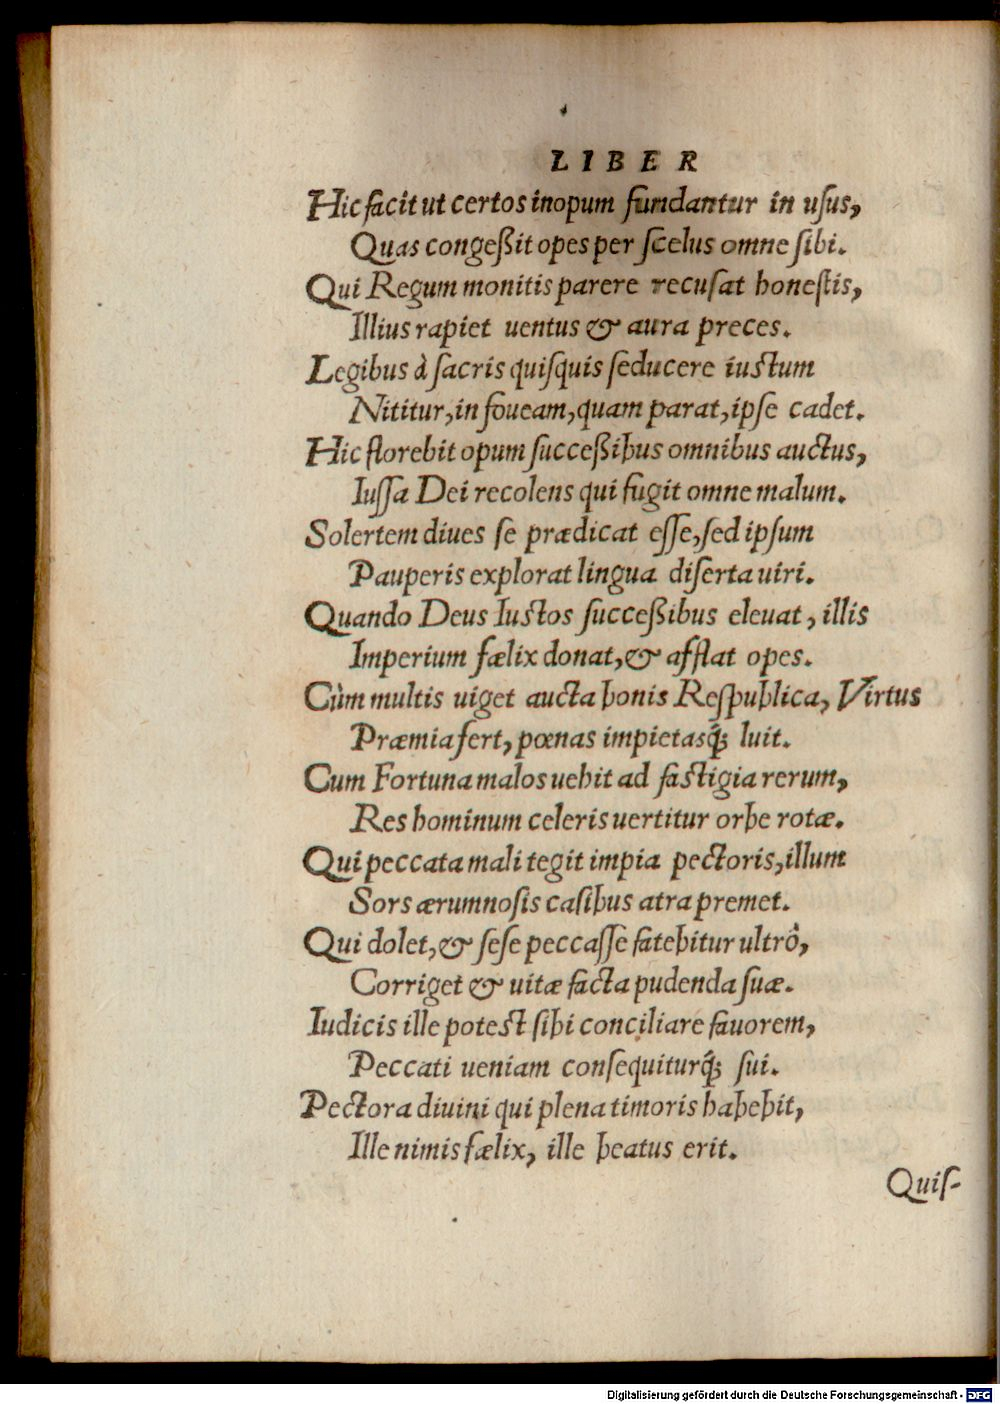 LIBER
Hic facit ut certos inopum fundantur in usus,
Quas congeßit opes per scelus omne sibi.
Qui Regum monitis parere recusat honestis,
Illius rapiet uentus & aura preces.
Legibus à sacris quisquis seducere iustum
Nititur, in foueam, quam parat, ipse cadet.
Hic florebit opum succeßibus omnibus auctus,
Iussa Dei recolens qui fugit omne malum.
Solertem diues se prædicat esse, sed ipsum
Pauperis explorat lingua diserta uiri.
Quando Deus Iustos succeßibus eleuat, illis
Imperium fælix donat, & afflat opes.
Cùm multis uiget aucta bonis Respublica, Virtus
Præmia fert, pœnas impietasq́; luit.
Cum Fortuna malos uehit ad fastigia rerum,
Res hominum celeris uertitur orbe rotæ.
Qui peccata mali tegit impia pectoris, illum
Sors ærumnosis casibus atra premet.
Qui dolet, & sese peccasse fatebitur ultrò,
Corriget & uitæ facta pudenda suæ.
Iudicis ille potest sibi conciliare fauorem,
Peccati ueniam consequiturq́; sui.
Pectora diuini qui plena timoris habebit,
Ille nimis fælix, ille beatus erit.
Quis-
Digitalisierung gefördert durch die Deutsche Forschungsgemeinschaft - DFG